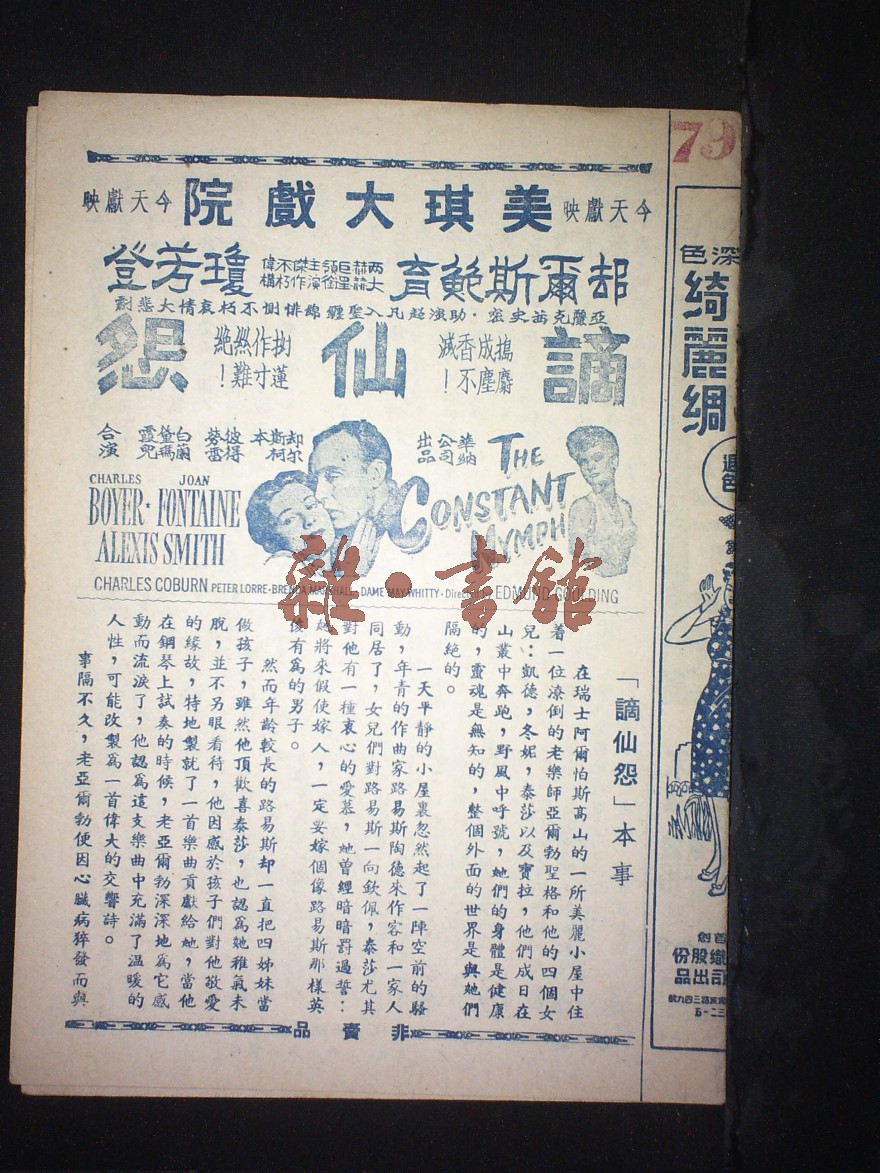 79
今天獻映 美琪大戲院 今天獻映
却爾斯鮑育 兩大赫赫巨星領銜主演傑作不朽偉構 瓊芳登
亞麗克茜史密·助演超凡入聖纏綿悱惻不朽哀情大悲劇
謫仙怨
搗麝成塵香不滅！
拗蓮作寸絲難絕！
華納公司出品
却尔斯柯本 彼得勞雷 白蘭黛瑪霞兒 合演
THE CONSTANT NYMPH
CHARLES BOYER · JOAN FONTAINE
ALEXIS SMITH
CHARLES COBURN PETER LORRE · BRENDA MARSHALL · DAME MAY WHITTY · EDMUND GOULDING
雜·書館
「謫仙怨」本事
在瑞士阿爾怕斯高山的一所美麗小屋中住
着一位潦倒的老樂師亞爾勃聖格和他的四個女
兒：凱德，冬妮，泰莎以及寶拉，他們成日在
山叢中奔跑，野風中呼號，她們的身體是健康
的，靈魂是無知的，整個外面的世界是與她們
隔絕的。
一天平靜的小屋裏忽然起了一陣空前的騷
動，年青的作曲家路易斯陶德來作客和一家人
同居了，女兒們對路易斯一向欽佩，泰莎尤其
對他有一種衷心的愛慕，她曾經暗暗罰過誓：
她將來假使嫁人，一定要嫁個像路易斯那樣英
俊有為的男子。
然而年齡較長的路易斯却一直把四姊妹當
做孩子，雖然他頂歡喜泰莎，也認爲她稚氣未
脫，並不另眼看待，他因感於孩子們對他敬愛
的緣故，特地製就了一首樂曲貢獻給她，當他
在鋼琴上試奏的時候，老亞爾勃深深地爲它感
動而流淚了，他認爲這支樂曲中充滿了温暖的
人性，可能改製爲一首偉大的交響詩。
事隔不久，老亞爾勃便因心臟病猝發而與
非賣品
深色
綺麗綢
退色